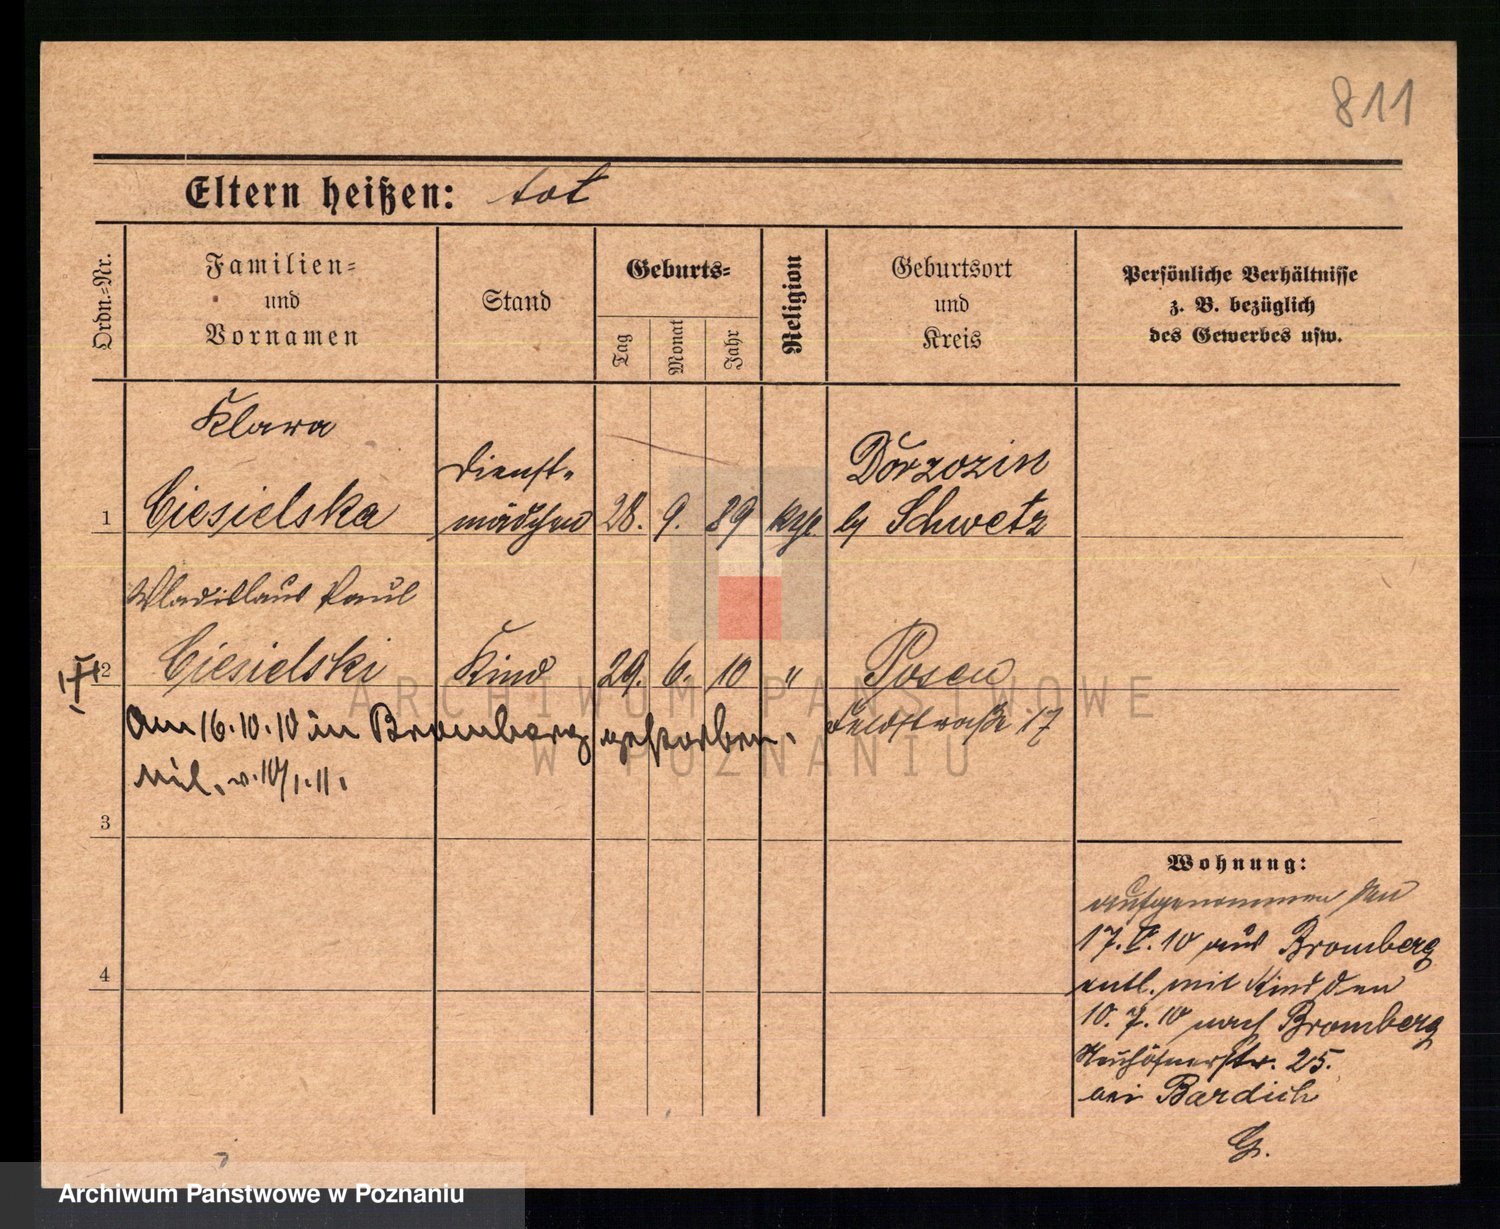 811
Eltern heißen: tot
Ordn.-Nr.
Familien-
und
Vornamen
Stand
Geburts-
Tag
Monat
Jahr
Religion
Geburtsort
und
Kreis
Persönliche Verhältnisse
z. B. bezüglich
des Gewerbes usw.
Klara
1 Ciesielska
Dienst-
mädchen
28. 9. 89
Dorzozin
by Schwetz
Wladislaus Paul
2 Ciesielski Kind 29. 6. 10 " Posen
Feldstraße 17
Am 16.10.10 in Bromberg gestorben.
v. 10/1.11.
3
4
Wohnung:
aufgenommen den
17. 10 aus Bromberg
entl. mit Kind den
10. 7. 10 nach Bromberg
25.
bei Bardich
G.
ARCHIWUM PAŃSTWOWE
W POZNANIU
Archiwum Państwowe w Poznaniu